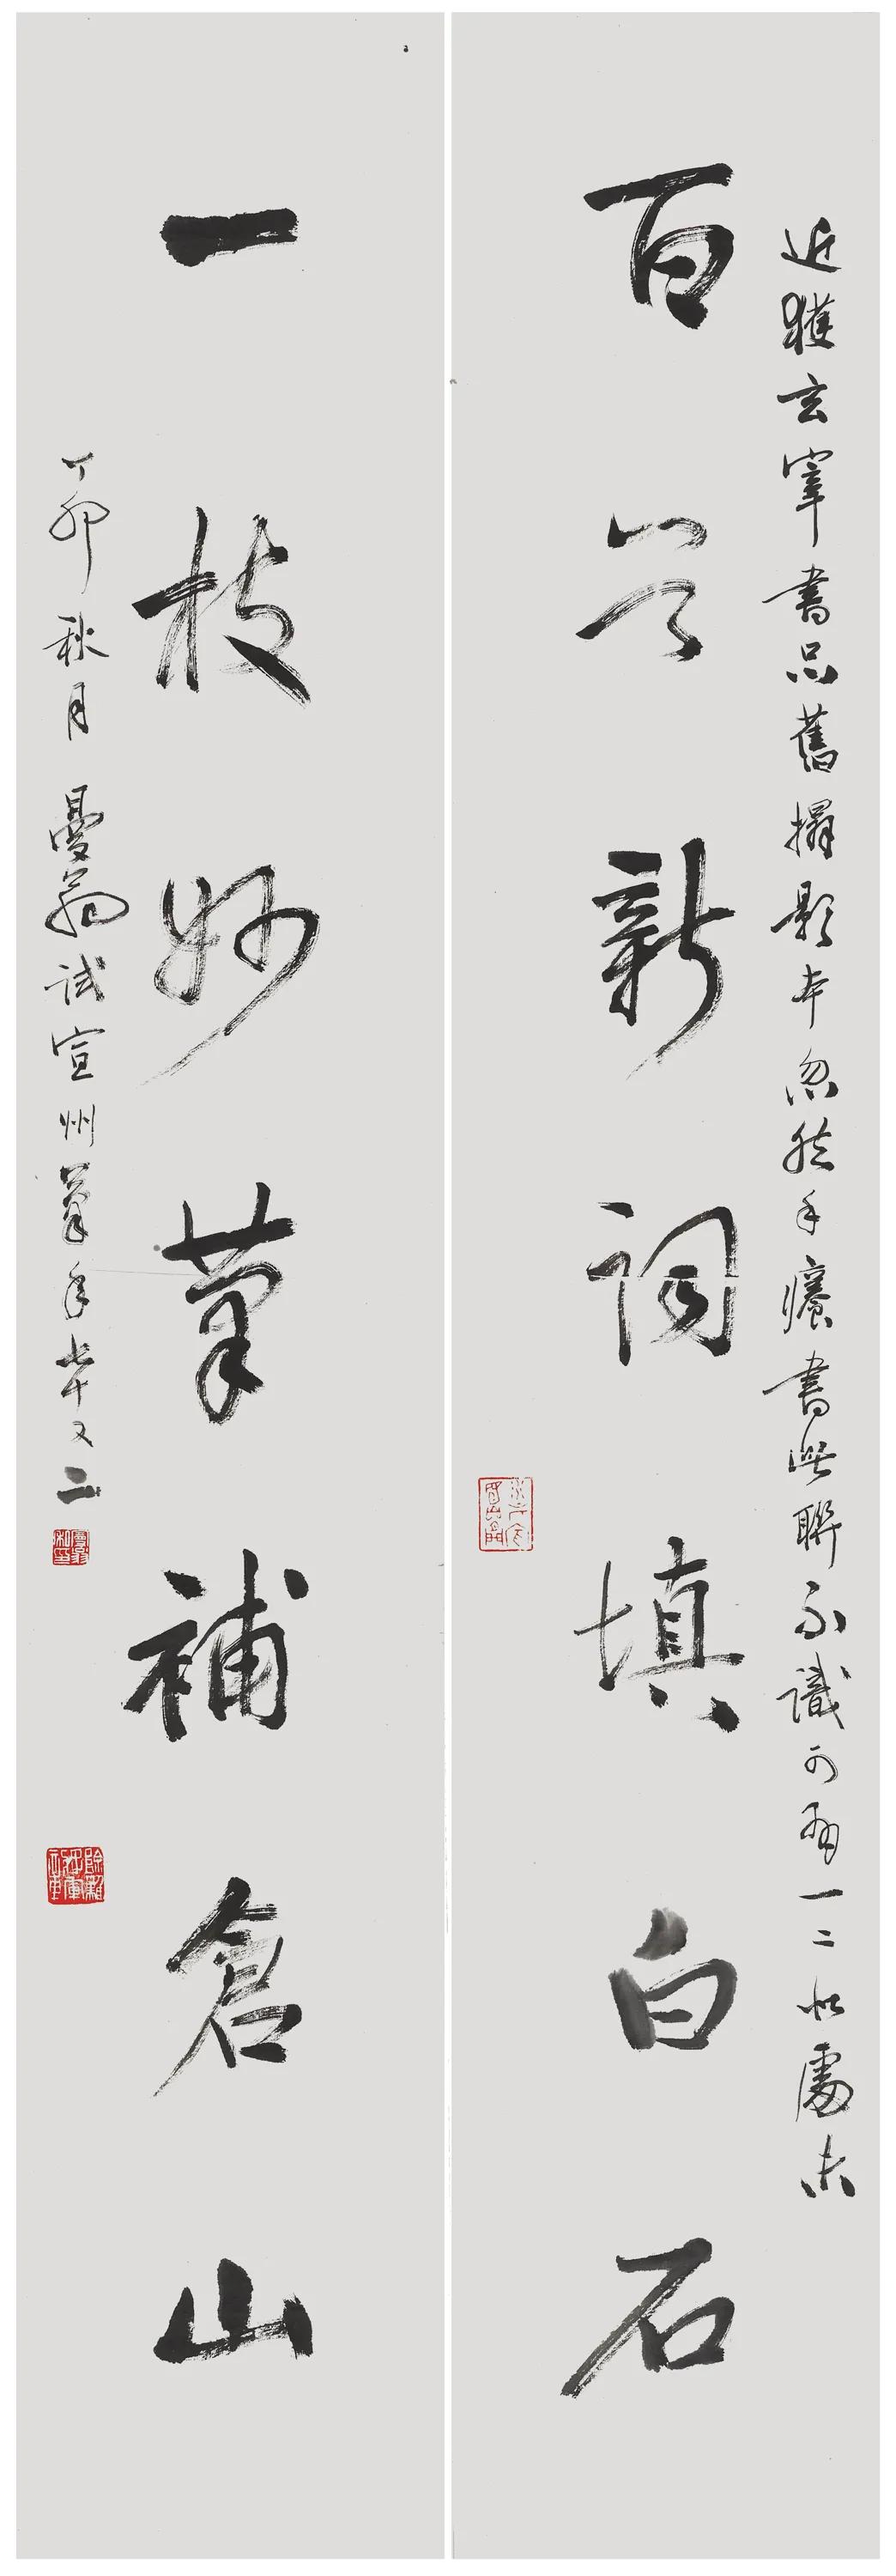 近獲玄宰書品舊搨影本忽然手癢書此聯不識可有一二似處未
百首新詞填白石
一枝妙筆補倉山
丁卯秋月曼翁試宣州筆年七十又二